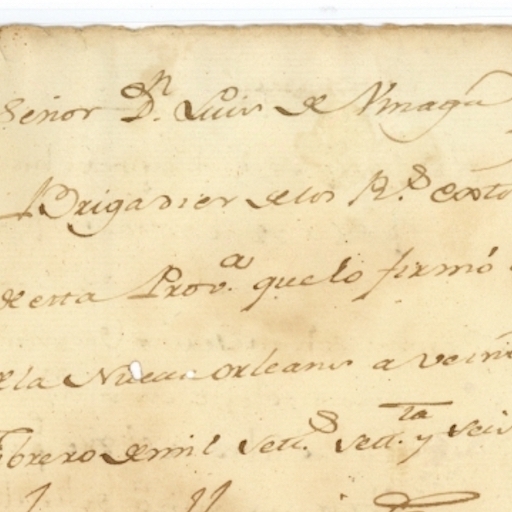 Señor Dn. Luis de Vnzaga
Brigadier delos Rs. exto
de esta Prova. que lo firmó
la Nueva orleans a vein
febrero de mil sets. settta. y seis